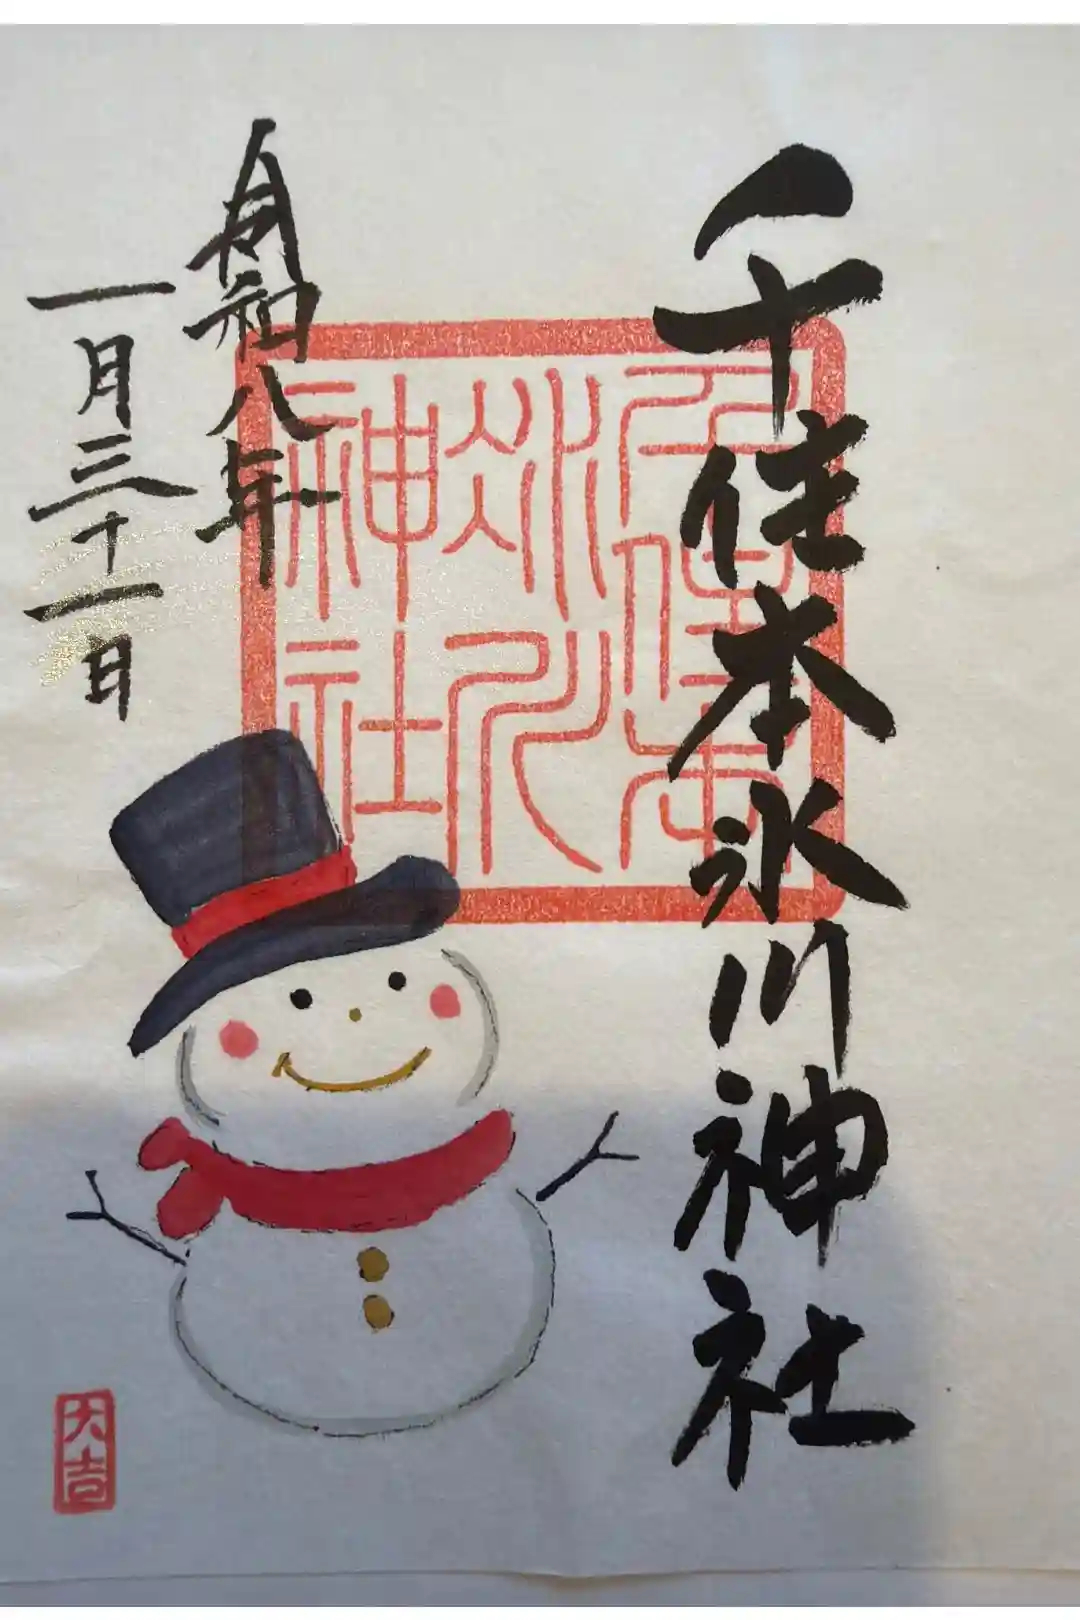 千住本氷川神社
令和八年
一月三十一日
千住本
氷川
神社
大吉